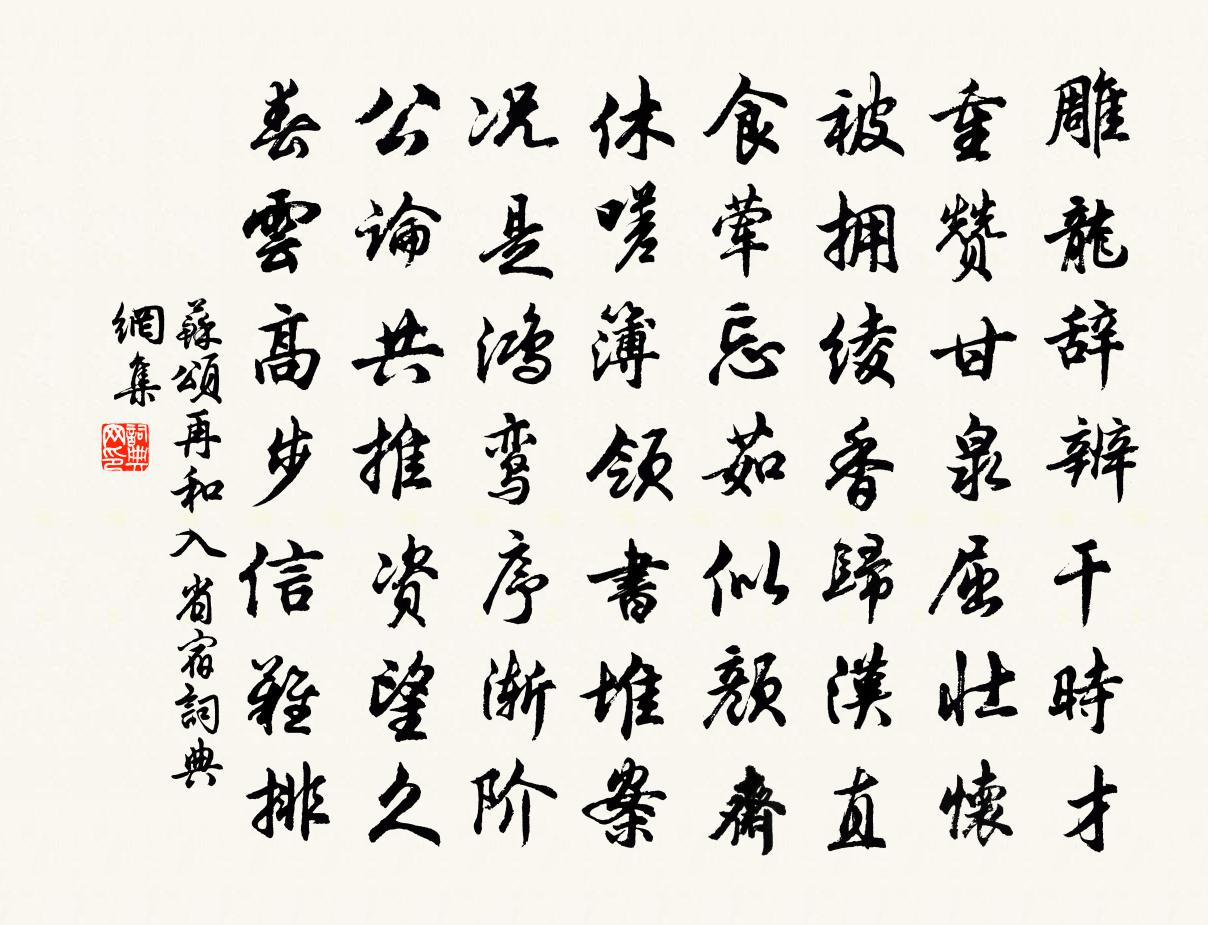 雕龍辞辨干時才
重赞甘泉屈壮懷
被拥绫香歸漢直
食荤忘茹似颜齋
休嗟簿领書堆案
况是鸿鸾序渐阶
公論共推资望久
青雲高步信難排
蘇頌再和入省宿詞典
網集
詞典网印